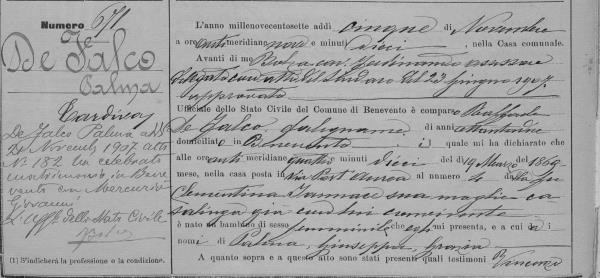 Numero 671
De Falco
Palma
Tardiva
De Falco Palma addì
24 Novembre 1907 atto
N° 182 ha celebrato
matrimonio in Bene
vento con Mercurio
Giovanni
L'Uff. dello Stato Civile
(1) S'indicherà la professione o la condizione.
L'anno millenovecentosette addì cinque di Novembre
a ore anti meridiane nove e minuti dieci, nella Casa comunale.
Avanti di me cav. Ferdinando assessore
delegato con atto del Sindaco del 23 Giugno 1907
approvato
Uffiziale dello Stato Civile del Comune di Benevento è comparso Raffaele
de Falco, falegname di anni
domiciliato in Benevento il quale mi ha dichiarato che
alle ore anti meridiane quattro minuti dieci del 19 Marzo 1869
mese, nella casa posta in via Port'Aurea al numero 4 dalla fu
Clementina Iannace sua moglie ca
salinga già con lui convivente
è nato un bambino di sesso femminile che egli mi presenta, e a cui dà i
nomi di Palma, Giuseppa, Grazia
A quanto sopra e a questo atto sono stati presenti quali testimoni Vincenzo